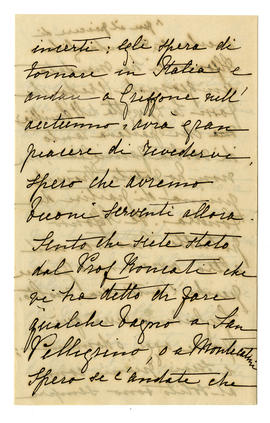 incerti; Egli spera di
tornare in Italia e
andare a Griffone nell'
autunno; avrà gran
piacere di rivedervi,
spero che avremo
buoni serventi allora.
Sento che siete stato
dal Prof. Roncati che
vi ha detto di fare
qualche bagno a San
Pellegrino, o a Montecatini
Spero se c'andate che